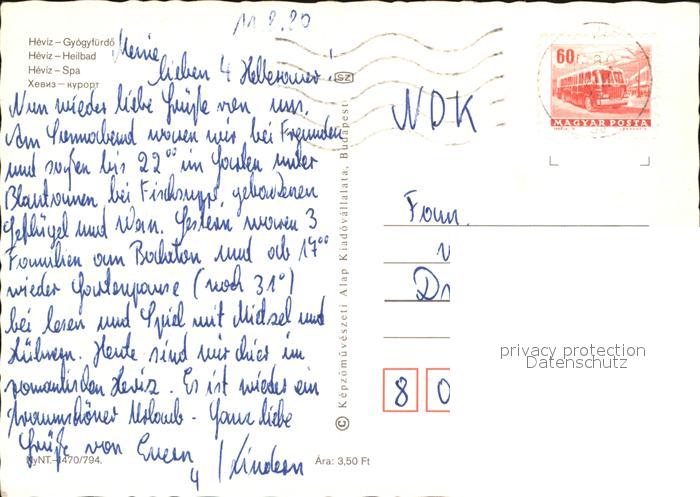 11.8.80
Hévíz – Gyógyfürdő
Hévíz – Heilbad
Hévíz – Spa
Хевиз – курорт
Meine
lieben 4
Nun wieder liebe Grüße von uns.
Am Sonnabend waren wir bei Freunden
und saßen bis 22⁰⁰ im Garten unter
Blautannen bei Fischsuppe, gebackenen
Geflügel und Wein. Gestern waren 3
Familien am Balaton und ab 17⁰⁰
wieder Gartenpause (noch 31°)
bei lesen und Spiel mit und
Hühnern. Heute sind wir hier im
romantischen Heviz. Es ist wieder ein
traumschöner Urlaub. Ganz liebe
Grüße von Euern
4 Lindern
NyNT.–1470/794.
Ára: 3,50 Ft
SZ
© Képzőművészeti Alap Kiadóvállalata, Budapest
60
MAGYAR POSTA
NDK
Fam.
Dr
8 0
privacy protection
Datenschutz